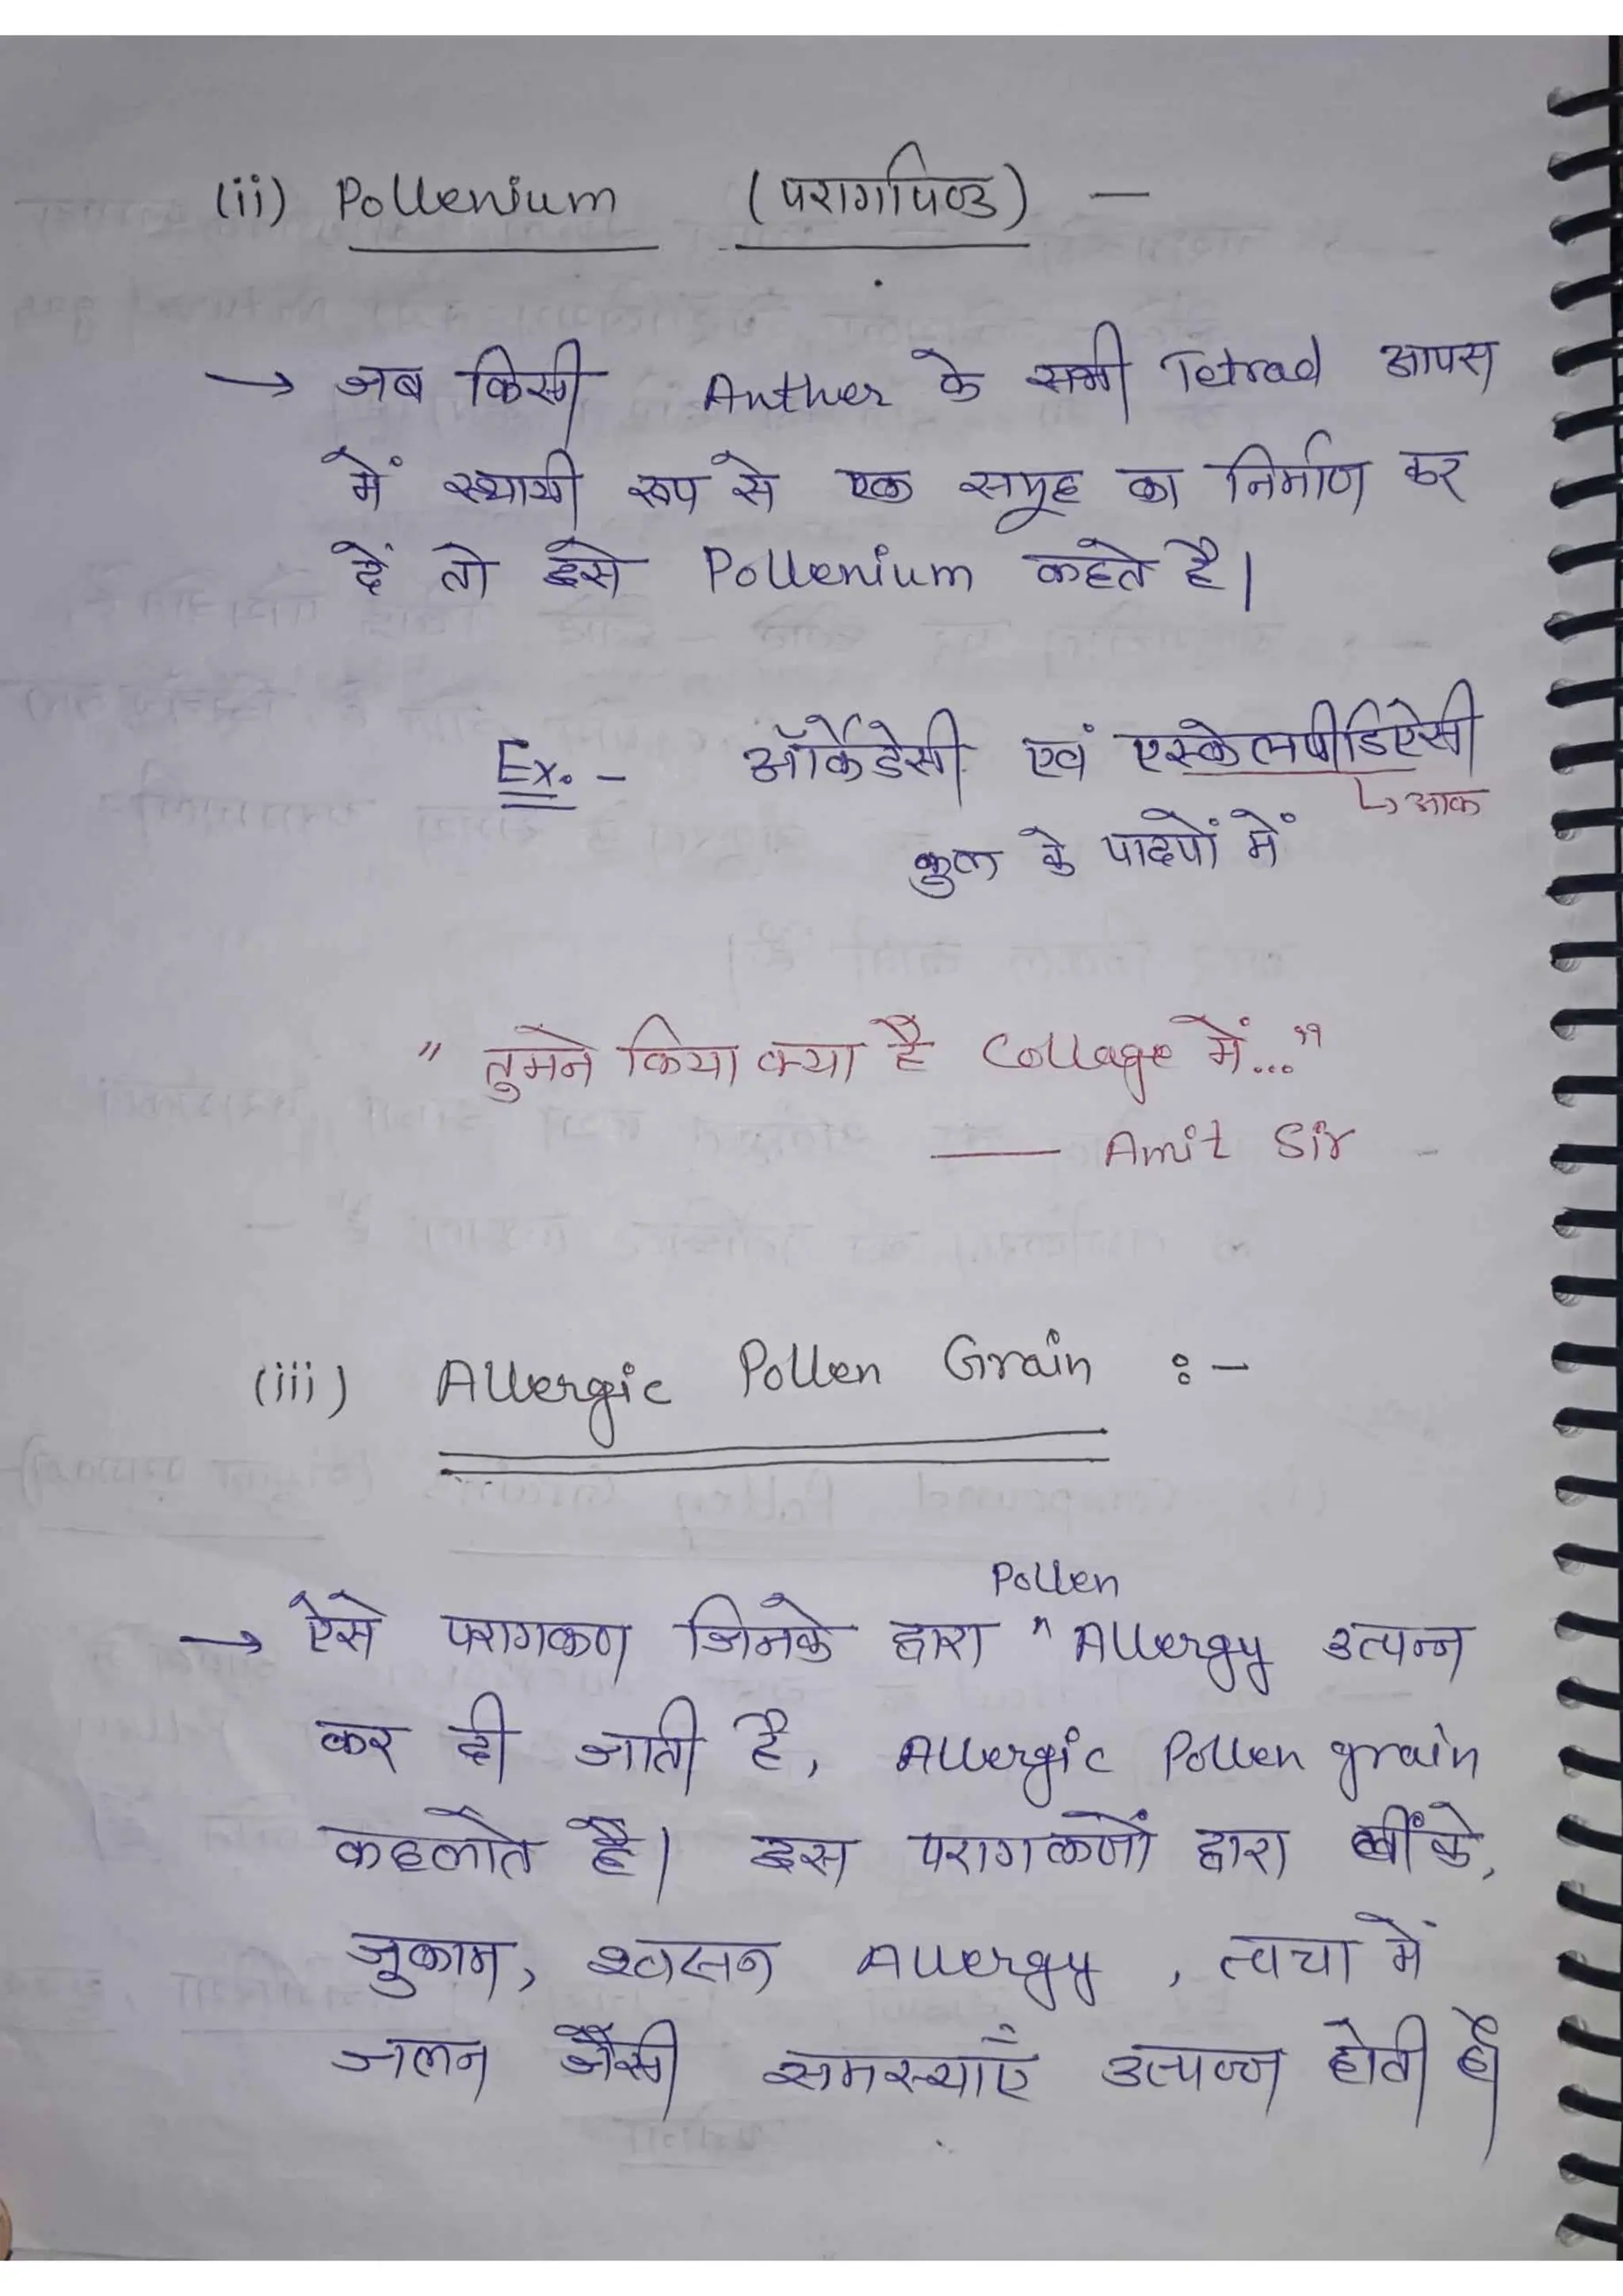 (ii) Pollenium (परागपिण्ड) —
→ जब किसी Anther के सभी Tetrad आपस
में स्थायी रूप से एक समूह का निर्माण कर
दें तो इसे Pollenium कहते है।
Ex. - ऑर्केडेसी एवं एस्केलपीडिऐसी
↳ आक
कुल के पादपों में
" तुमने किया क्या है Collage में..."
— Amit Sir
(iii) Allergic Pollen Grain :-
Pollen
→ ऐसे परागकण जिनके द्वारा ^ Allergy उत्पन्न
कर दी जाती है, Allergic Pollen grain
कहलाते है। इस परागकणों द्वारा छींके,
जुकाम, श्वसन Allergy , त्वचा में
जलन जैसी समस्याएँ उत्पन्न होती है।